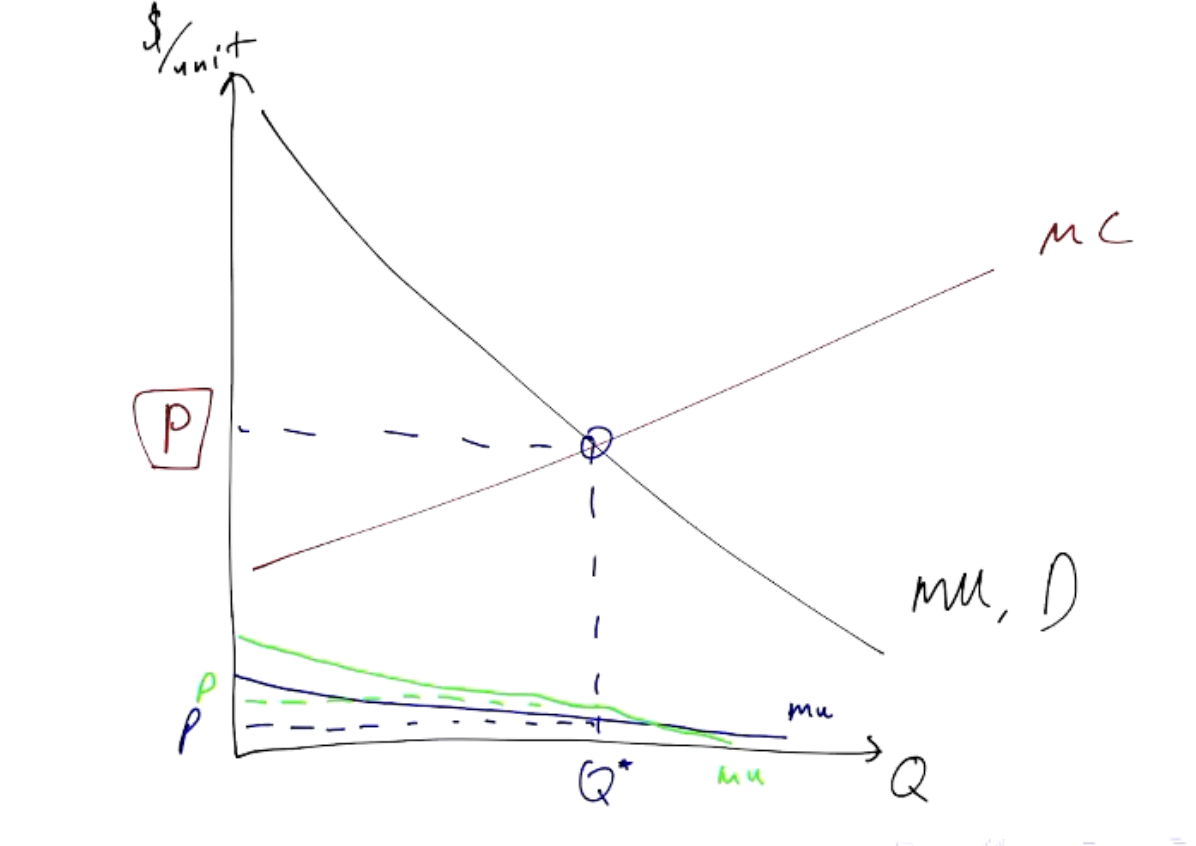 $/unit
MC
P
MU, D
P
P
mu
Q*
mu
Q